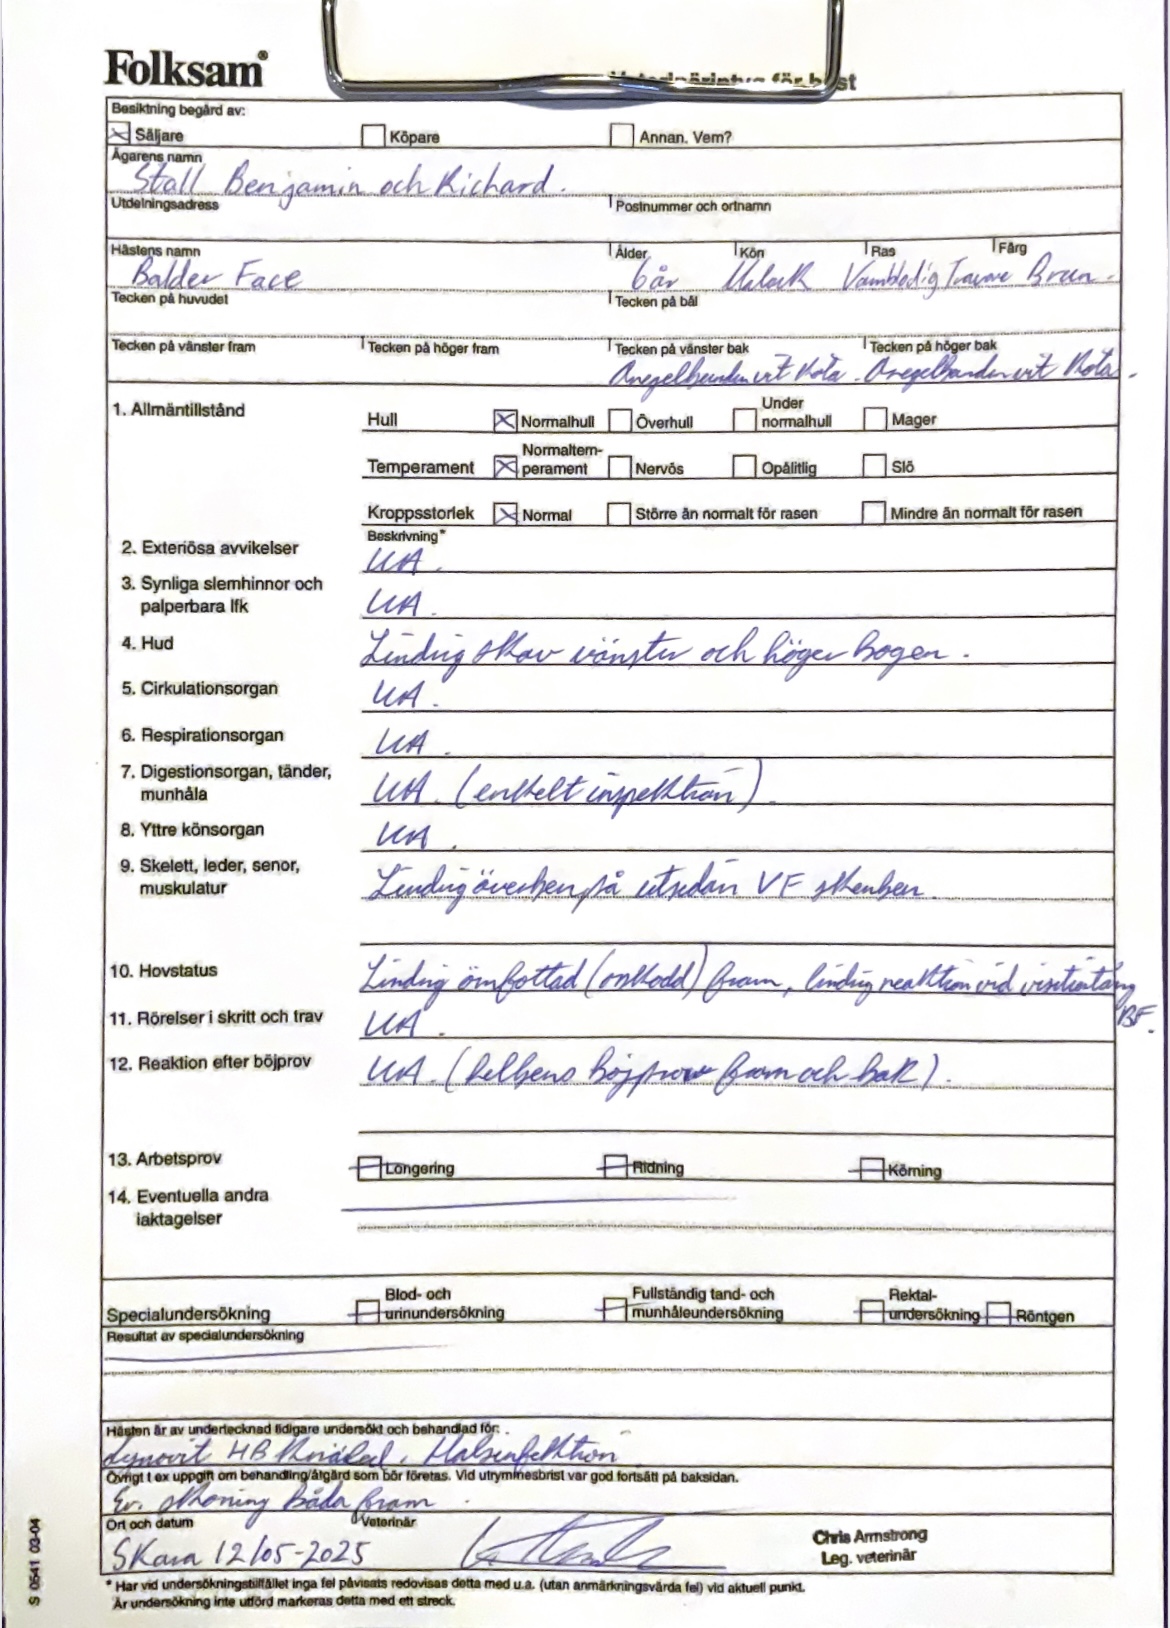 Folksam®
Veterinärintyg för häst
Besiktning begärd av:
Säljare Köpare Annan. Vem?
Ägarens namn
Stall Benjamin och Richard.
Utdelningsadress Postnummer och ortnamn
Hästens namn Ålder Kön Ras Färg
Balder Face 6 år Valack Varmblodig Travare Brun.
Tecken på huvudet Tecken på bål
Tecken på vänster fram Tecken på höger fram Tecken på vänster bak Tecken på höger bak
vit Kota. vit Kota.
1. Allmäntillstånd
Hull Normalhull Överhull Under normalhull Mager
Temperament Normaltemperament Nervös Opålitlig Slö
Kroppsstorlek Normal Större än normalt för rasen Mindre än normalt för rasen
Beskrivning*
2. Exteriösa avvikelser UA.
3. Synliga slemhinnor och
palperbara lfk UA.
4. Hud Lindrig skav vänster och höger bogen.
5. Cirkulationsorgan UA.
6. Respirationsorgan UA.
7. Digestionsorgan, tänder,
munhåla UA. (enkelt inspektion)
8. Yttre könsorgan UA.
9. Skelett, leder, senor,
muskulatur Lindrig överben på utsidan VF skenben.
10. Hovstatus Lindrig ömfottad (oskodd) fram, lindrig reaktion vid visitertång
BF.
11. Rörelser i skritt och trav UA.
12. Reaktion efter böjprov UA. (helbens böjprov fram och bak).
13. Arbetsprov Longering Ridning Körning
14. Eventuella andra
iaktagelser
Specialundersökning Blod- och urinundersökning Fullständig tand- och munhåleundersökning Rektalundersökning Röntgen
Resultat av specialundersökning
Hästen är av undertecknad tidigare undersökt och behandlad för:
HB Knäled, Halsinfektion
Övrigt t ex uppgift om behandling/åtgärd som bör företas. Vid utrymmesbrist var god fortsätt på baksidan.
Ev. skoning båda fram.
Ort och datum Veterinär
Skara 12/05-2025
Chris Armstrong
Leg. veterinär
* Har vid undersökningstillfället inga fel påvisats redovisas detta med u.a. (utan anmärkningsvärda fel) vid aktuell punkt.
Är undersökning inte utförd markeras detta med ett streck.
S 0541 03-04